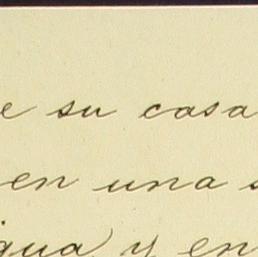 e su casa
en una s
igua, y en